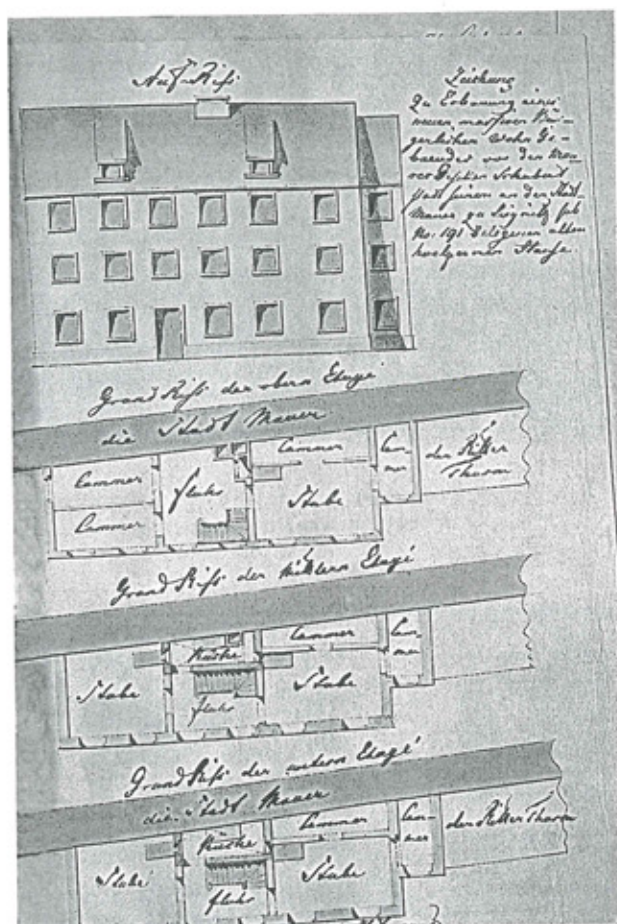 Auf-Riß
Zeichnung
Zu Erbauung eines
neuen massiven Bür-
gerlichen Wohn Ge-
baeudes vor den
Schubert
statt seinen an der Stadt
Mauer zu Liegnitz sub
No. 191 belegenen alten
hoelzernen Hause.
Grund Riß der obern Etage
die Stadt Mauer
Cammer
Cammer
fluhr
Cammer
Stube
Cam-
mer
der Ritter
Thurm
Grund Riß der mittlern Etage
Stube
Küche
fluhr
Cammer
Stube
Cam-
mer
Grund Riß der untern Etage
die Stadt Mauer
Stube
Küche
fluhr
Cammer
Stube
Cam-
mer
der Ritter Thurm